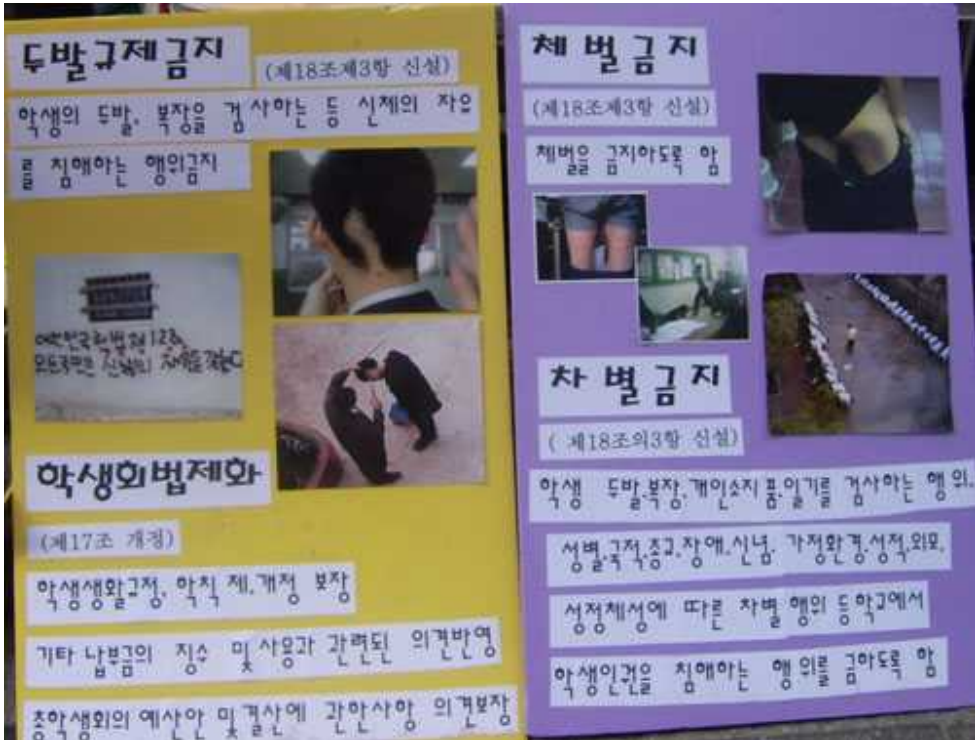 두발규제금지
(제18조제3항 신설)
학생의 두발, 복장을 검사하는 등 신체의 자유
를 침해하는 행위금지
대한민국 헌법 제12조
모든국민은 신체의 자유를 갖는다
학생회법제화
(제17조 개정)
학생생활규정, 학칙 제.개정 보장
기타 납부금의 징수 및 사용과 관련된 의견반영
총학생회의 예산안 및결산에 관한사항 의견보장
체벌금지
(제18조제3항 신설)
체벌을 금지하도록 함
차별금지
( 제18조의3항 신설)
학생 두발.복장.개인소지품.일기를 검사하는 행위.
성별.국적.종교.장애.신념. 가정환경.성적.외모.
성정체성에 따른 차별 행위 등학교에서
학생인권을 침해하는 행위를 금하도록 함